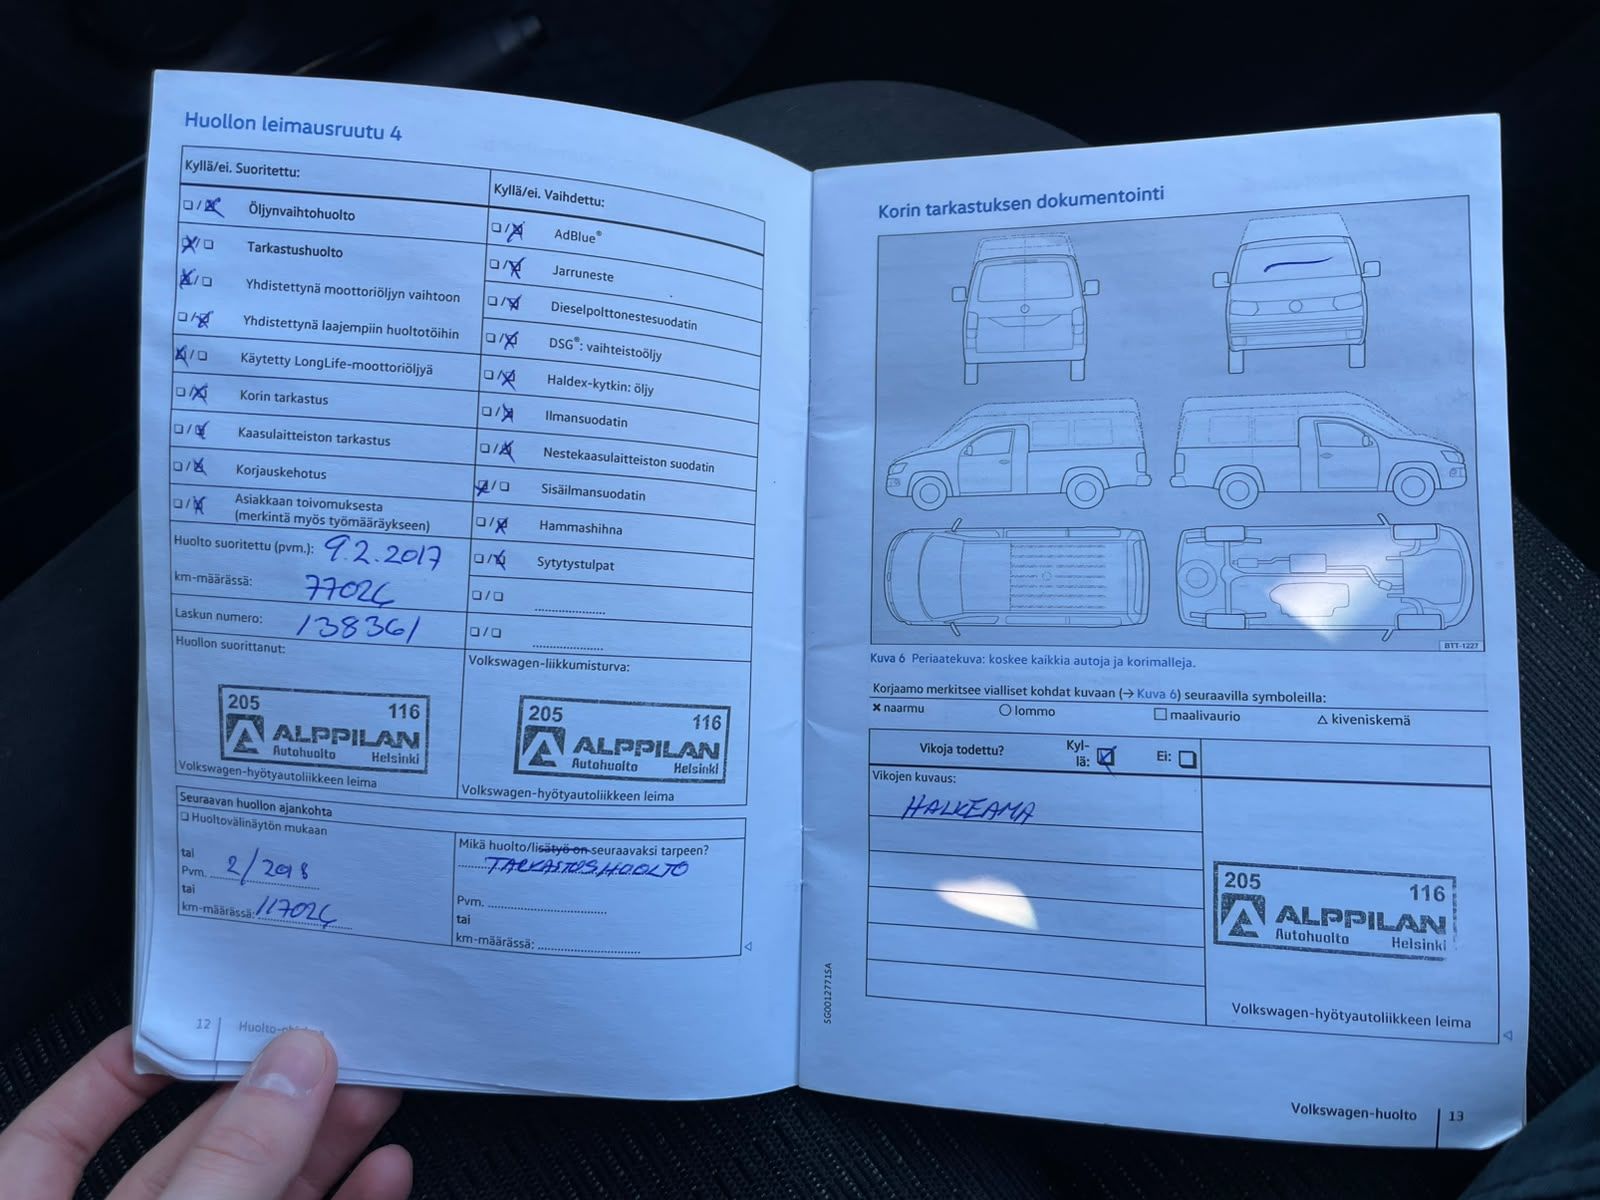 Huollon leimausruutu 4
Kyllä/ei. Suoritettu:
Öljynvaihtohuolto
Tarkastushuolto
Yhdistettynä moottoriöljyn vaihtoon
Yhdistettynä laajempiin huoltotöihin
Käytetty LongLife-moottoriöljyä
Korin tarkastus
Kaasulaitteiston tarkastus
Korjauskehotus
Asiakkaan toivomuksesta
(merkintä myös työmääräykseen)
Huolto suoritettu (pvm.): 9.2.2017
km-määrässä: 77024
Laskun numero: 138361
Huollon suorittanut:
205 116
ALPPILAN
Autohuolto Helsinki
Volkswagen-hyötyautoliikkeen leima
Kyllä/ei. Vaihdettu:
AdBlue®
Jarruneste
Dieselpolttonestesuodatin
DSG®: vaihteistoöljy
Haldex-kytkin: öljy
Ilmansuodatin
Nestekaasulaitteiston suodatin
Sisäilmansuodatin
Hammashihna
Sytytystulpat
Volkswagen-liikkumisturva:
205 116
ALPPILAN
Autohuolto Helsinki
Volkswagen-hyötyautoliikkeen leima
Seuraavan huollon ajankohta
Huoltovälinäytön mukaan
tai
Pvm. 2/2018
tai
km-määrässä: 117024
Mikä huolto/lisätyö on seuraavaksi tarpeen?
TARKASTUSHUOLTO
Pvm.
tai
km-määrässä:
12
Korin tarkastuksen dokumentointi
BTT-1227
Kuva 6 Periaatekuva: koskee kaikkia autoja ja korimalleja.
Korjaamo merkitsee vialliset kohdat kuvaan (→ Kuva 6) seuraavilla symboleilla:
naarmu lommo maalivaurio kiveniskemä
Vikoja todettu? Kyl-
lä: Ei:
Vikojen kuvaus:
HALKEAMA
205 116
ALPPILAN
Autohuolto Helsinki
Volkswagen-hyötyautoliikkeen leima
5G0012771SA
Volkswagen-huolto 13